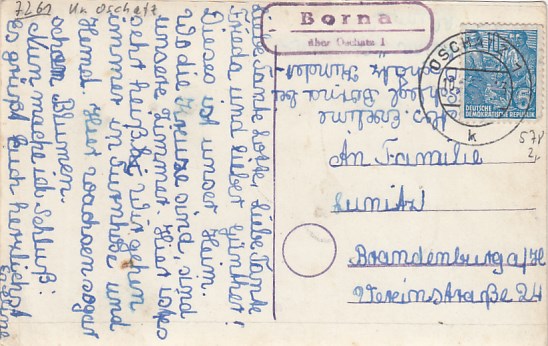 7261 Kr. Oschatz
Borna
über Oschatz 1
OSCHATZ
k
DEUTSCHE
DEMOKRATISCHE REPUBLIK
5
Liebe Tante Lotte, Liebe Tante
Frieda und lieber Günther!
Dieses ist unser Heim.
Wo die Kreuze sind, sind
unsere Zimmer. Hier ist es
sehr heiß. Wir gehen
immer in Turnhose und
Hemd. Hier wachsen sogar
schon Blumen.
Nun mache ich Schluß.
Es grüßt Euch herzlichst
Eveline
Abs. Eveline
Borna bei
An Familie
Lunitz
Brandenburg a/H
Vereinstraße 24